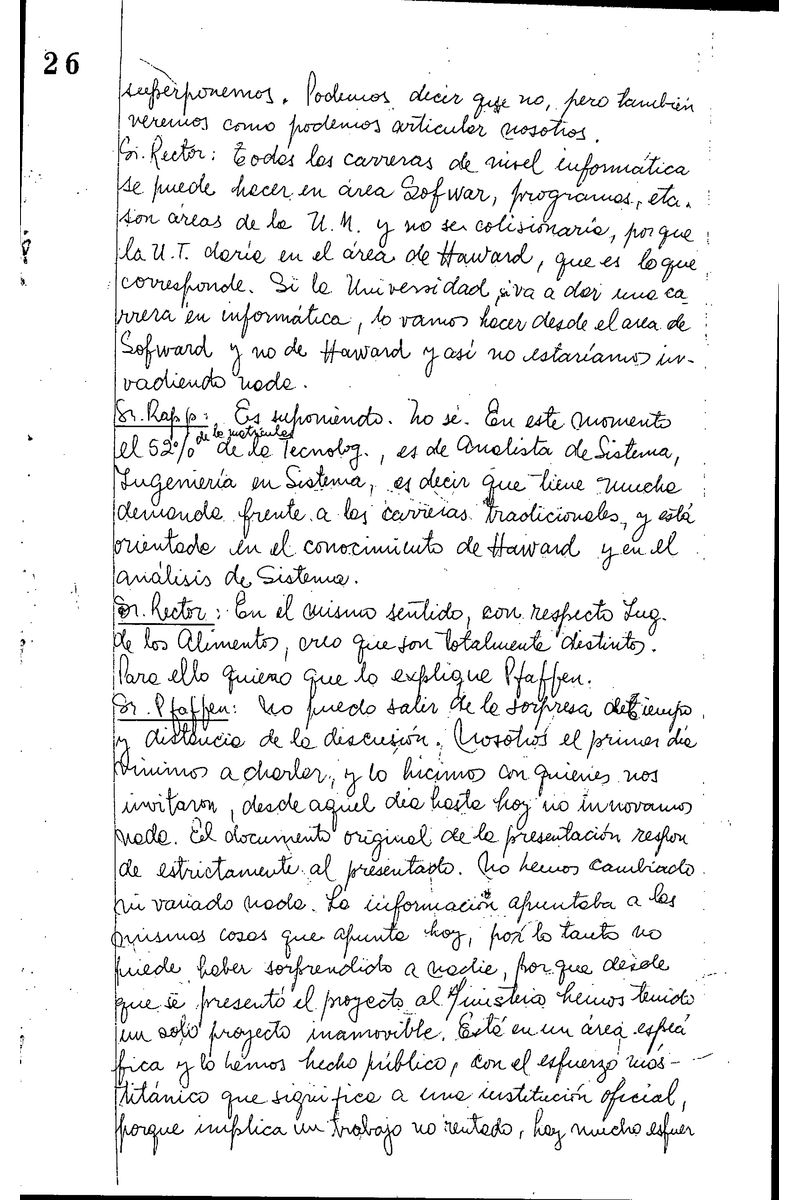 26
superponemos. Podemos decir que no, pero también
veremos como podemos articular nosotros.
Sr. Rector: todas las carreras de nivel informática
se puede hacer en área Sofwar, programas, etc.
son áreas de la U.N. y no se colisionaría, porque
la U.T. daría en el área de Haward, que es lo que
corresponde. Si la Universidad, si va a dar una ca
rrera en informática, lo vamos hacer desde el area de
Sofward y no de Haward y así no estaríamos in-
vadiendo nada.
Sr. Rapp: Es suponiendo. No sé. En este momento
el 52% de la matrícula de la Tecnolog., es de Analista de Sistema,
Ingeniería en Sistema, es decir que tiene mucha
demanda frente a las carreras tradicionales, y está
orientada en el conocimiento de Haward y en el
análisis de Sistema.
Sr. Rector: En el mismo sentido, con respecto Ing.
de los Alimentos, creo que son totalmente distintos.
Para ello quiero que lo explique Pfaffen.
Sr. Pfaffen: No puedo salir de la sorpresa de tiempo
y distancia de la discusión. Nosotros el primer día
vinimos a charlar, y lo hicimos con quienes nos
invitaron, desde aquel día hasta hoy no innovamos
nada. El documento original de la presentación respon
de estrictamente al presentado. No hemos cambiado
ni variado nada. La información apuntaba a las
mismas cosas que apunta hoy, por lo tanto no
puede haber sorprendido a nadie, porque desde
que se presentó el proyecto al Ministerio hemos tenido
un solo proyecto inamovible. Está en un área espeā
fica y lo hemos hecho público, con el esfuerzo más-
titánico que significa a una institución oficial,
porque implica un trabajo no rentado, hay mucho esfuer